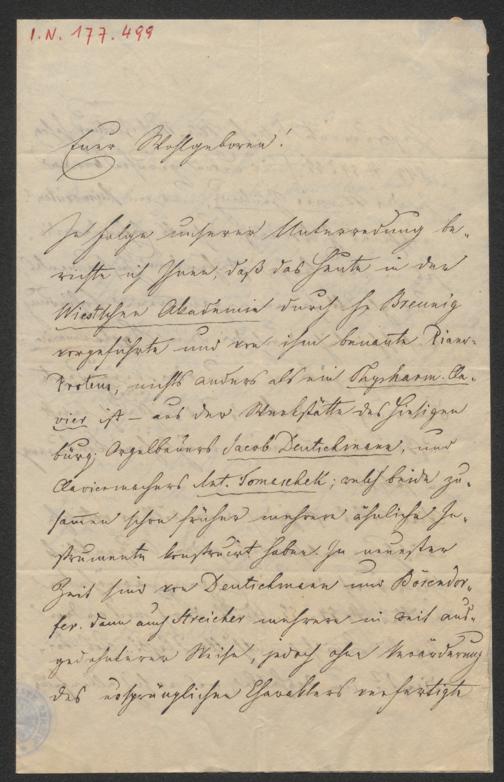 I.N. 177.499
Euer Wohlgeboren!
In folge unserer Unterredung be-
richte ich Ihnen, daß das heute in der
Wiest'schen Akademie durch H Breunig
vorgeführte und von ihm benannte Piano-
Proteus, nichts anders als ein Physharm. Cla-
vier ist – aus der Werkstätte des hiesigen
bürg: Orgelbauers Jacob Deutschmann, und
Claviermachers Ant. Tomaschek; welch beide zu-
sammen schon früher mehrere ähnliche In-
strumente konstruirt haben. In neuester
Zeit sind von Deutschmann und Bösendor-
fer, dann auch Streicher mehrere in weit aus-
gedehnterer Weise, jedoch ohne Veränderung
des ursprünglichen Charakters verfertigte